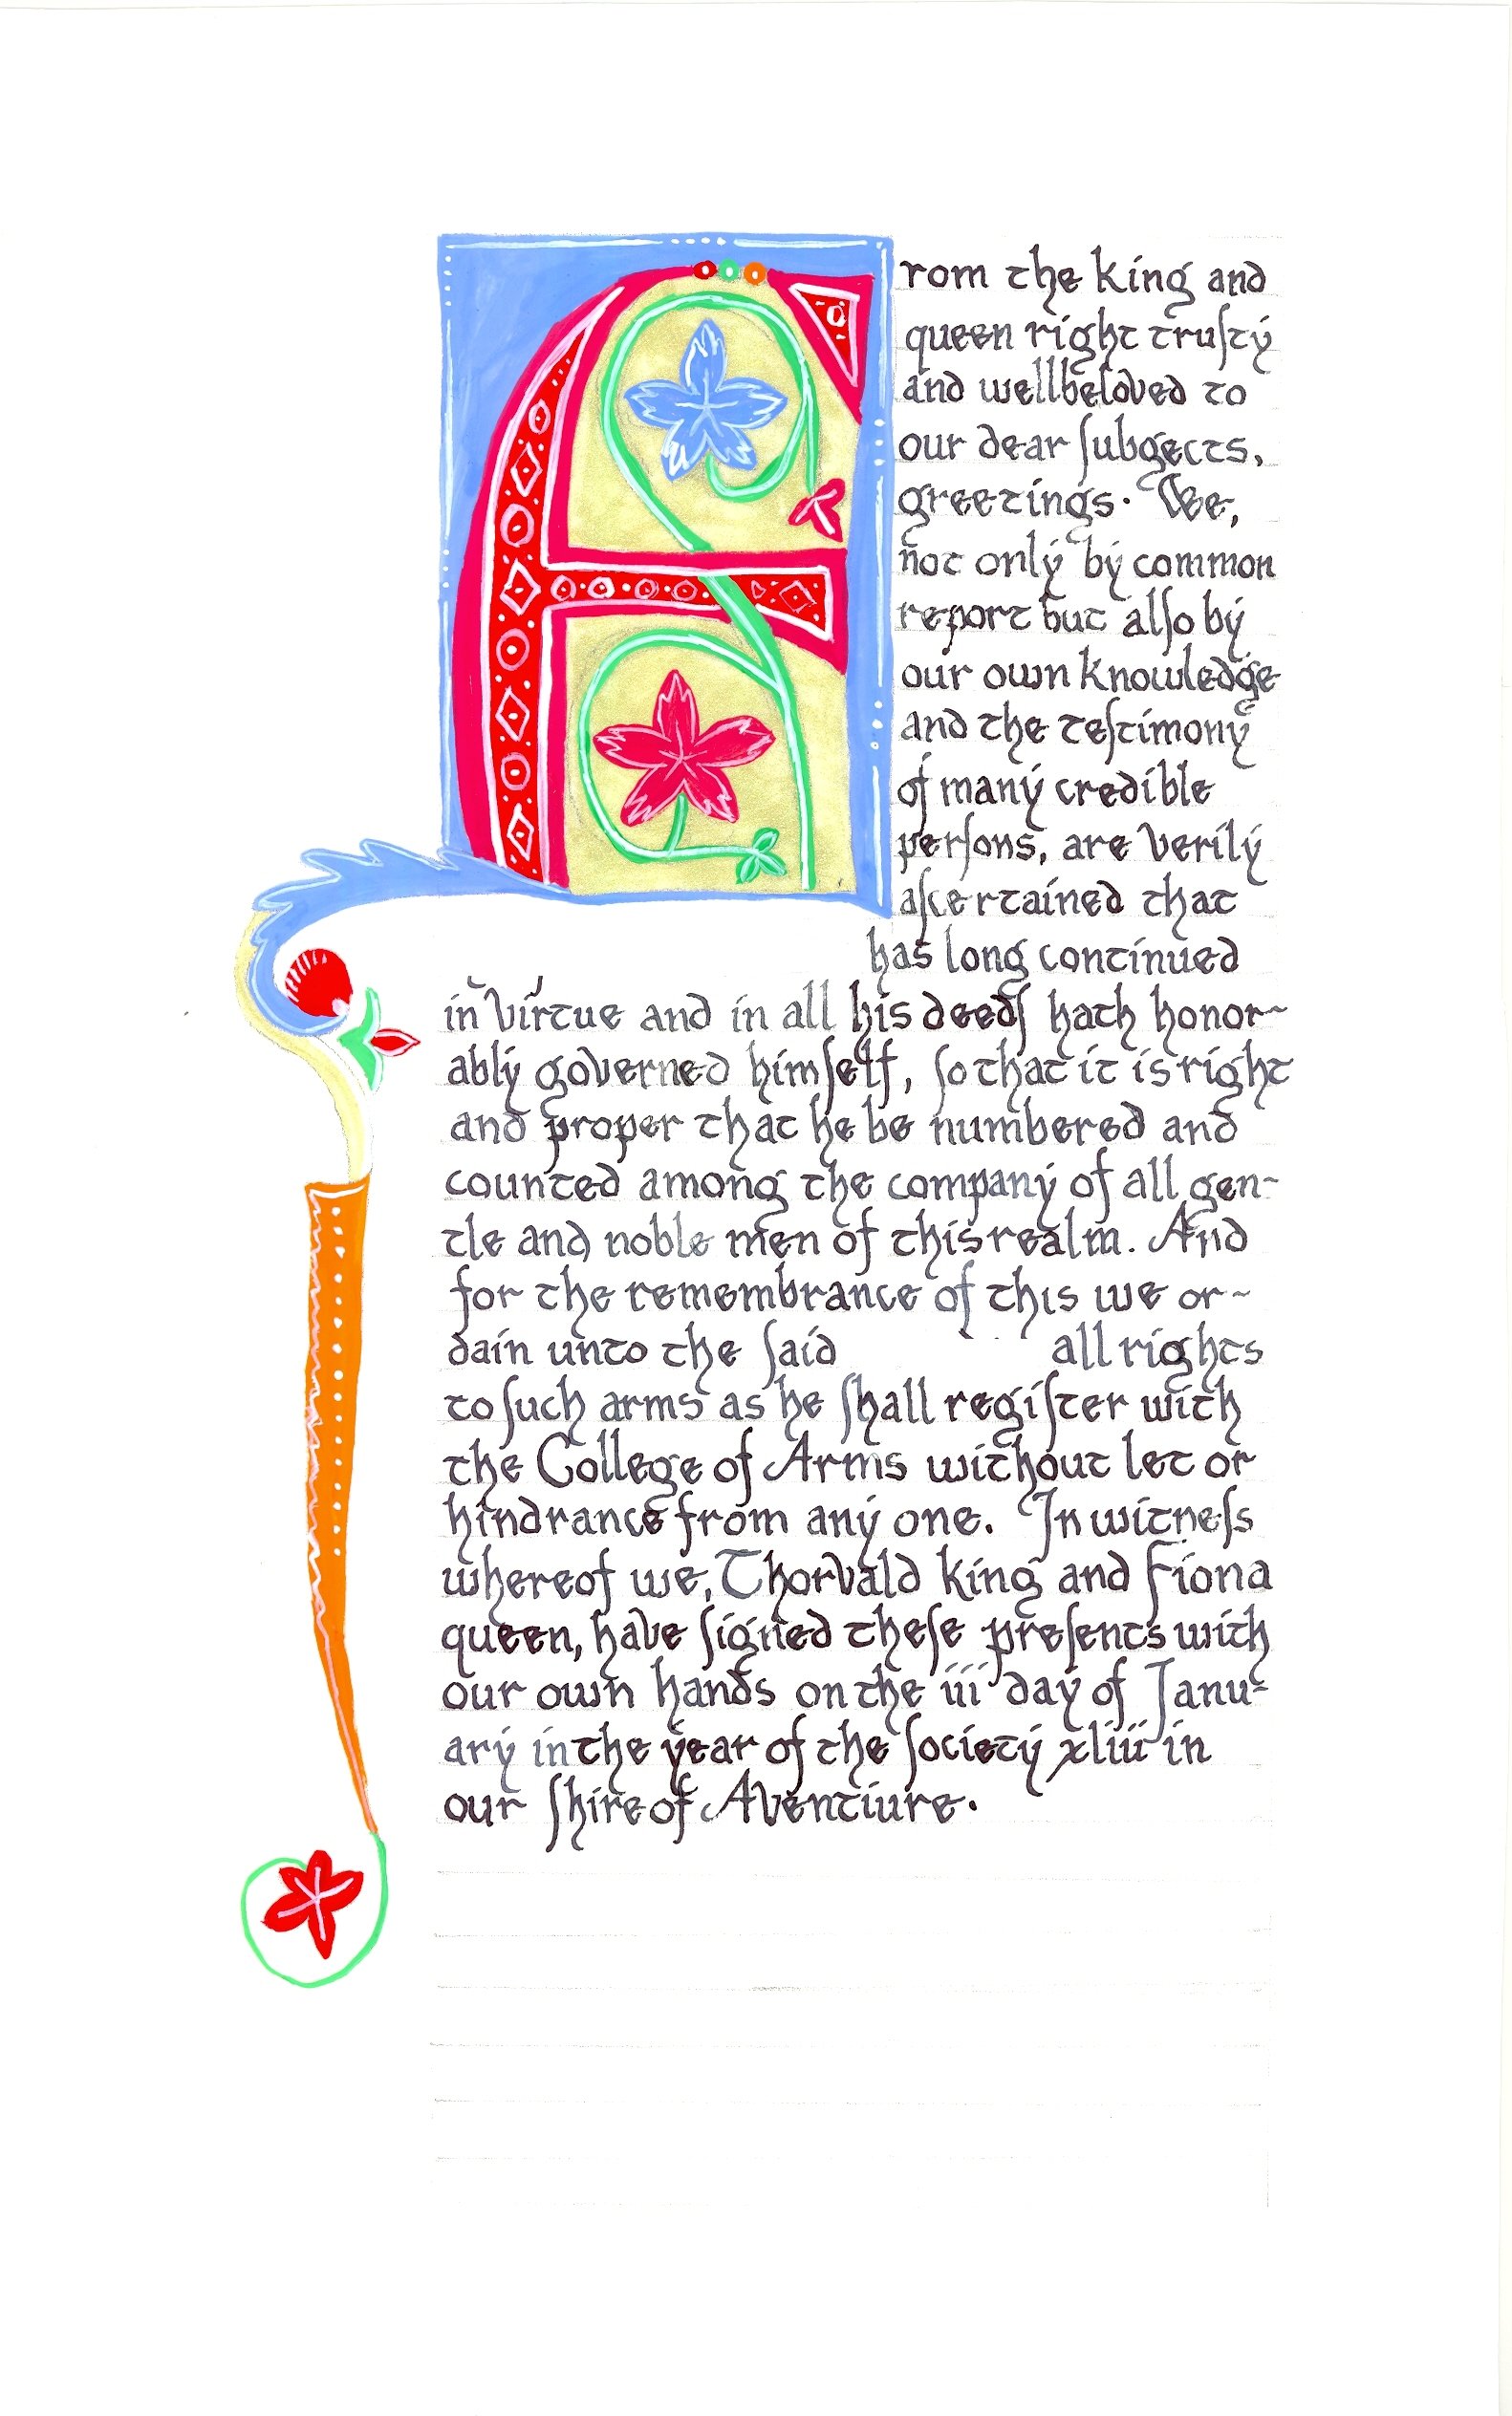 From the king and
queen right truſty
and wellbeloved to
our dear ſubgects,
greetings. We,
not only by common
report but alſo by
our own knowledge
and the teſtimony
of many credible
perſons, are verily
aſcertained that
has long continued
in virtue and in all his deedſ hath honor~
ably governed himſelf, ſo that it is right
and proper that he be numbered and
counted among the company of all gen~
tle and noble men of this realm. And
for the remembrance of this we or~
dain unto the ſaid all rights
to ſuch arms as he ſhall regiſter with
the College of Arms without let or
hindrance from any one. In witneſs
whereof we, Thorvald king and Fiona
queen, have ſigned theſe preſents with
our own hands on the iii day of Janu-
ary in the year of the ſociety xliii in
our ſhire of Aventiure.